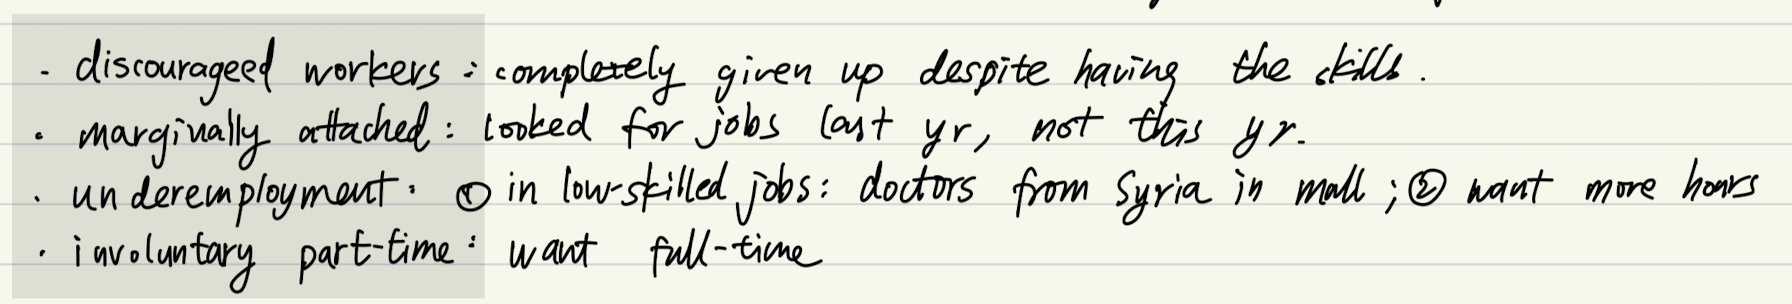 - discourageed workers : completely given up despite having the skills.
· marginally attached : looked for jobs last yr, not this yr.
· underemployment : ① in low-skilled jobs: doctors from Syria in mall ; ② want more hours
· involuntary part-time : want full-time